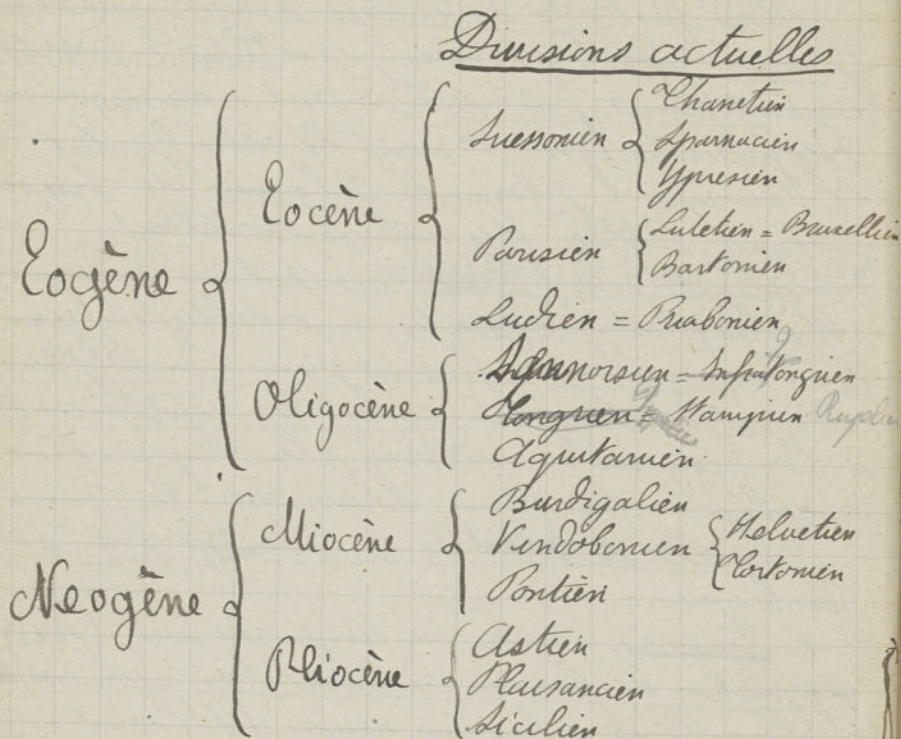 Divisions actuelles
Eogène
Eocène
Suessonien
Thanetien
Sparnacien
Ypresien
Parisien
Lutetien = Bruxellien
Bartonien
Ludien = Priabonien
Oligocène
Sannoisien = Infratongrien
Tongrien = Stampien Rupelien
Aquitanien
Neogène
Miocène
Burdigalien
Vindobonien
Helvetien
Tortonien
Pontien
Pliocène
Astien
Plaisancien
Sicilien